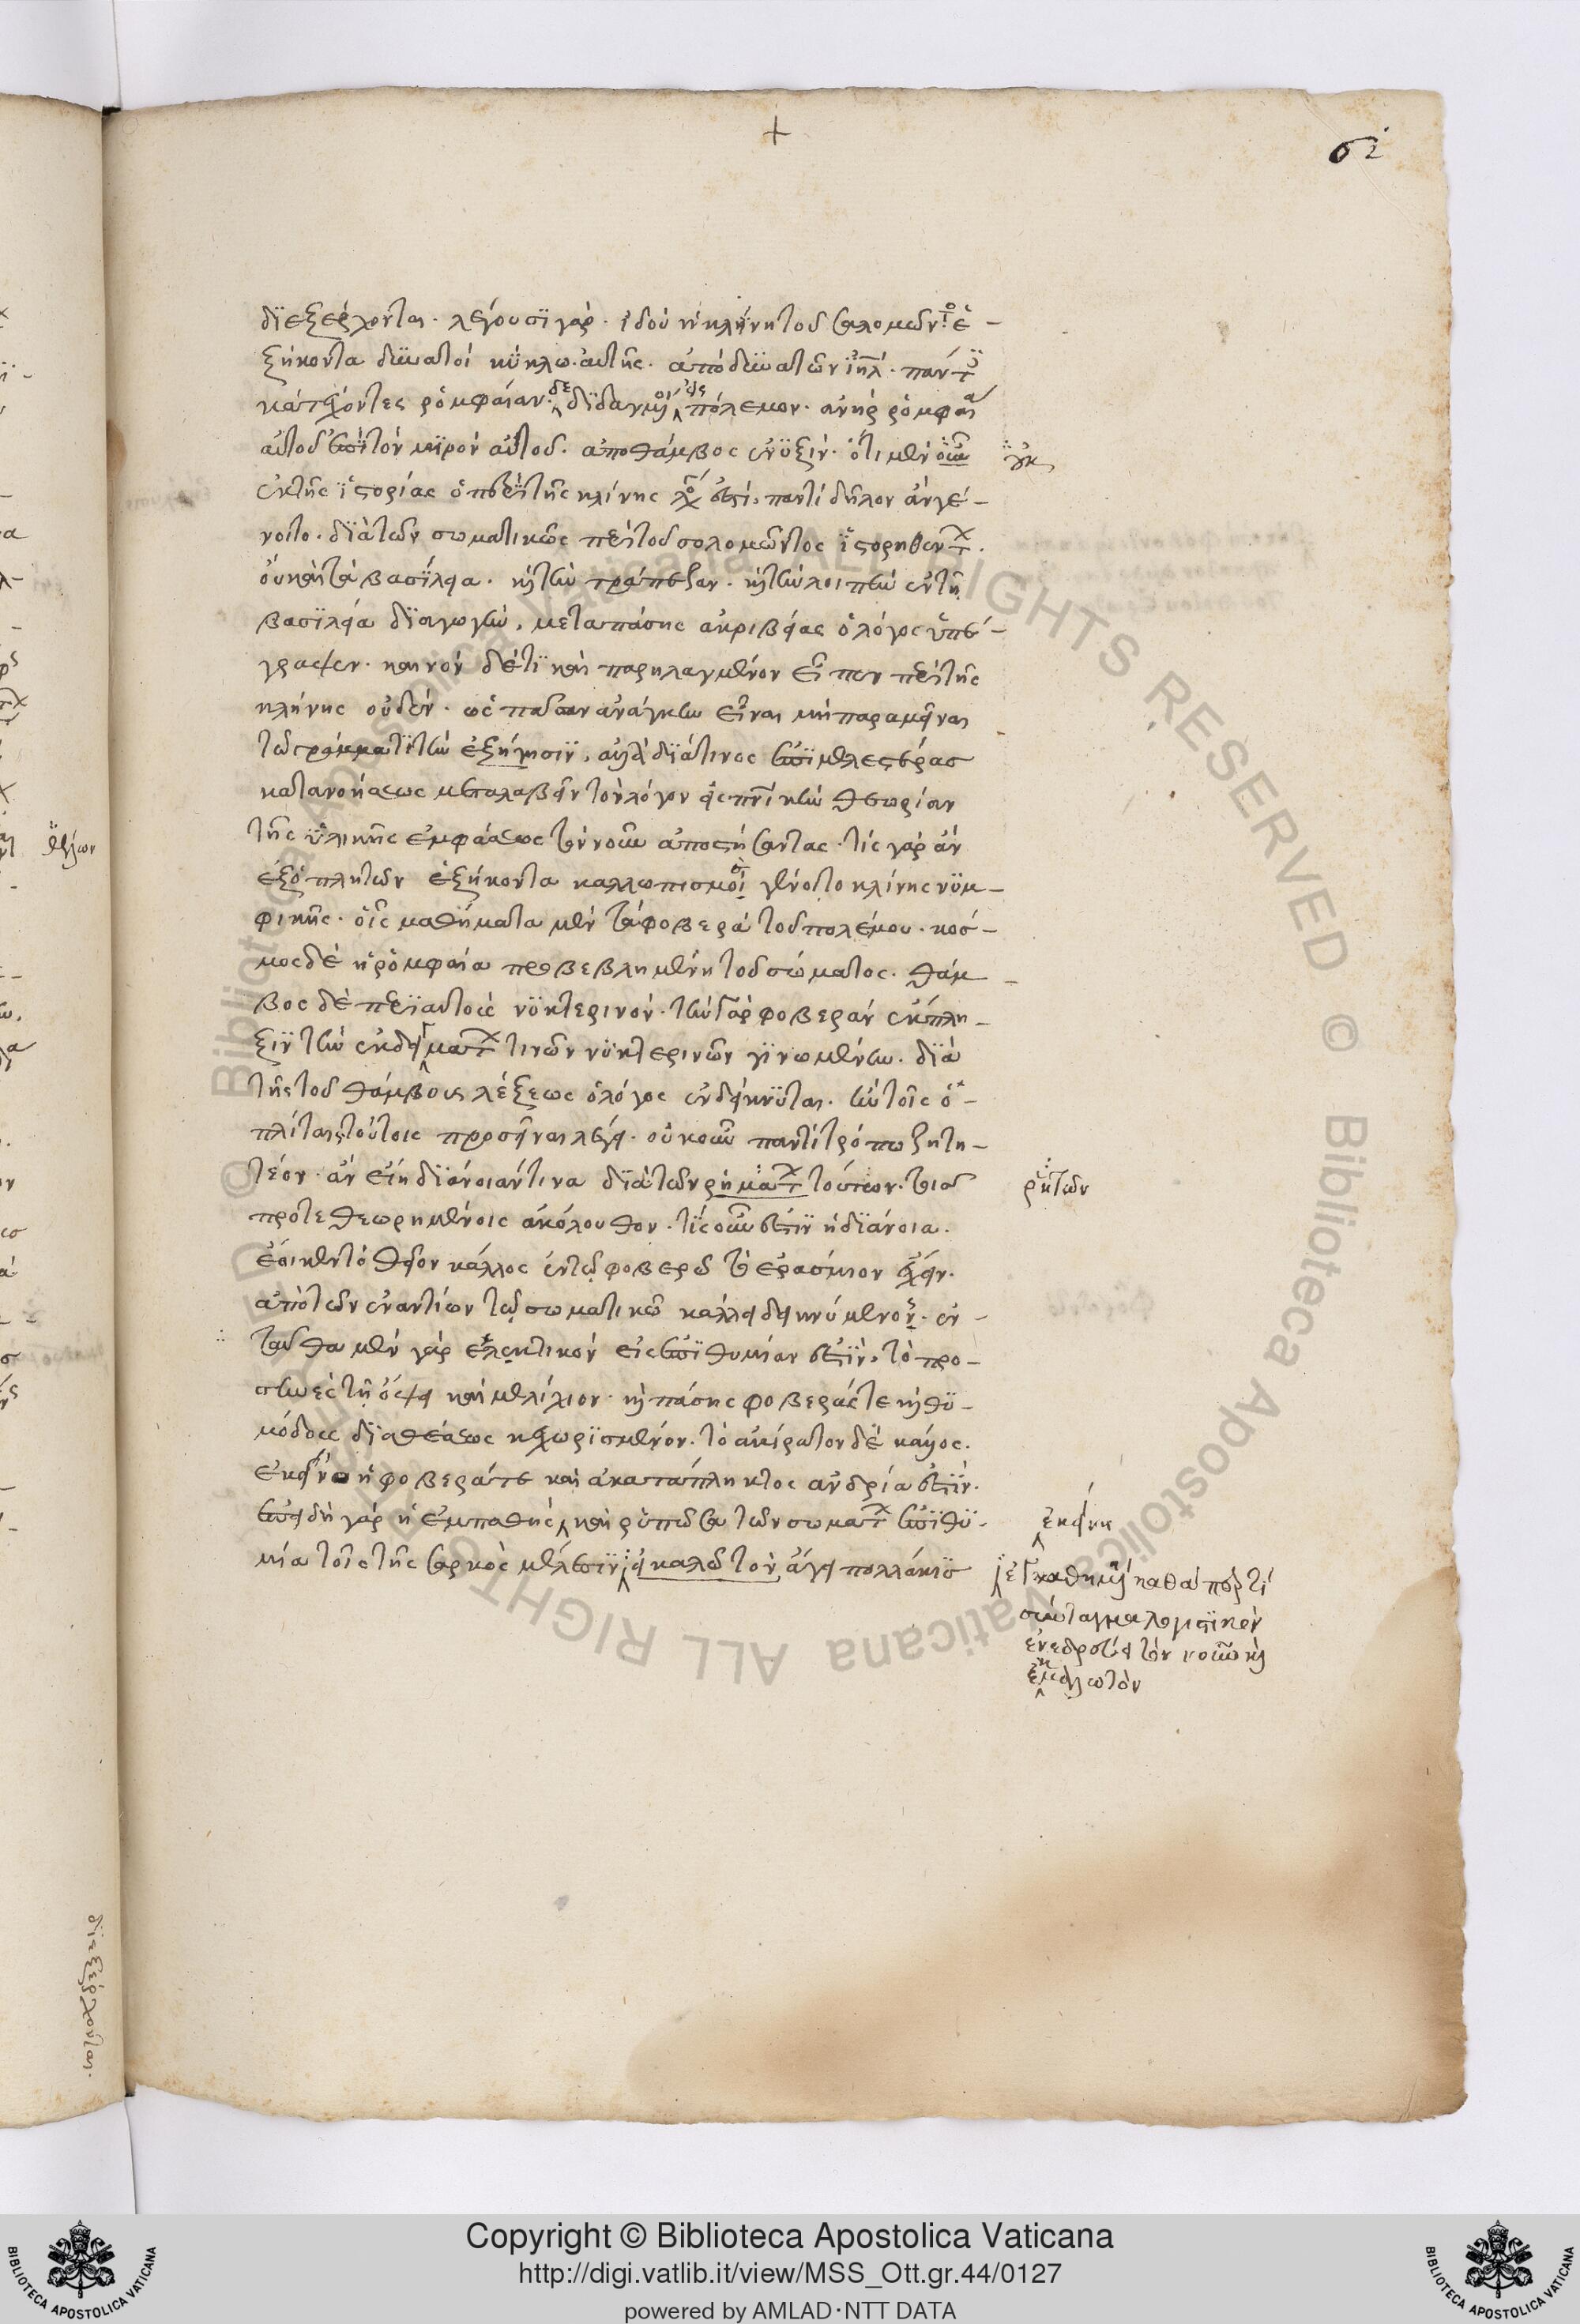 +
διεξέρχονται. λέγουσι γάρ. ἰδοὺ ἡ κλίνη τοῦ σαλομῶντος ἑ-
ξήκοντα δυνατοὶ κύκλω αὐτῆς. ἀπὸ δυνατῶν ἰηλ. πάντες
κατέχοντες ρομφαίαν. δεδιδαγμένοι πόλεμον. ἀνὴρ ρομφαία
αὐτοῦ ἐπὶ τὸν μηρὸν αὐτοῦ. ἀπο θάμβος ἐν νυξίν. ὅτι μὲν οὖν
ἐκ τῆς ἱστορίας ὁ περὶ τῆς κλίνης λόγος ἐστί. παντὶ δῆλον ἂν γέ-
νοιτο. διὰ τῶν σωματικῶς περὶ τοῦ σολομῶντος ἱστορηθέντων.
οὗ καὶ τὰ βασίλεια. καὶ τὴν τράπεζαν. καὶ τὴν λοιπὴν ἐν τῇ
βασιλεία διαγωγὴν. μετὰ πάσης ἀκριβείας ὁ λόγος ὑπέ-
γραψεν. καινὸν δέ τι καὶ παρηλαγμένον εἶπεν περὶ τῆς
κλίνης οὐδέν. ὡς πᾶσαν ἀνάγκην εἶναι μὴ παραμεῖναι
τῶ γράμματι τὴν ἐξήγησιν. ἀλλὰ διά τινος ἐπιμελεστέρας
κατανοήσεως μεταλαβεῖν τὸν λόγον εἰς πνικὴν θεωρίαν
τῆς ὑλικῆς ἐμφάσεως τὸν νοῦν ἀποστήσαντας. τίς γὰρ ἂν
ἐξ ὁπλητῶν ἑξήκοντα καλλωπισμὸς γένοιτο κλίνης νυμ-
φικῆς. οἷς μαθήματα μὲν τὰ φοβερὰ τοῦ πολέμου. κόσ-
μος δὲ ἡ ρομφαία προβεβλημένη τοῦ σώματος. θάμ-
βος δὲ περὶ αὐτοὺς νυκτερινόν. τὴν γὰρ φοβερὰν ἔκπλη-
ξιν τὴν ἐκ δειμάτων τινῶν νυκτερινῶν γινομένην. διὰ
τῆς τοῦ θάμβους λέξεως ὁ λόγος ἐνδείκνυται. ἣν τοῖς ὁ-
πλίταις τούτοις προσεῖναι λέγει. οὐκοῦν παντὶ τρόπω ζητη-
τέον ἂν εἴη διάνοιάν τινα διὰ τῶν ρημάτων τούτων. τοῖς
προτεθεωρημένοις ἀκόλουθον. τίς οὖν ἐστιν ἡ διάνοια.
ἔοικεν τὸ θεῖον κάλλος ἐν τῷ φοβερῶ τὸ ἐράσμιον ἔχειν.
ἀπὸ τῶν ἐναντίων τῷ σωματικῶ κάλλει δεικνύμενον. ἐν-
ταῦθα μὲν γὰρ ἑλκτικὸν εἰς ἐπιθυμίαν ἐστὶν. τὸ προ-
σηνές τῆ ὄψει καὶ μειλίχιον. καὶ πάσης φοβερᾶς τε καὶ θυ-
μώδους διαθέσεως κεχωρισμένον. τὸ ἀκήρατον δὲ κάλλος.
ἐκεῖνο ἡ φοβερά τε καὶ ἀκατάπληκτος ἀνδρία ἐστίν.
ἐπειδὴ γὰρ ἡ ἐμπαθής, καὶ ρυπῶσα τῶν σωμάτων ἐπιθυ-
μία τοῖς τῆς σαρκὸς μέλεσιν, καλῶ τὸν ἄγει πολλάκις
ρητῶν
ἐκείνη
ἐγκαθημένη καθάπερ τι
σύνταγμα ληστρικὸν
ἐνεδρεύει τὸν νοῦν καὶ
διεξέρχονται.
Copyright © Biblioteca Apostolica Vaticana
http://digi.vatlib.it/view/MSS_Ott.gr.44/0127
powered by AMLAD·NTT DATA
BIBLIOTECA APOSTOLICA VATICANA
BIBLIOTECA APOSTOLICA VATICANA